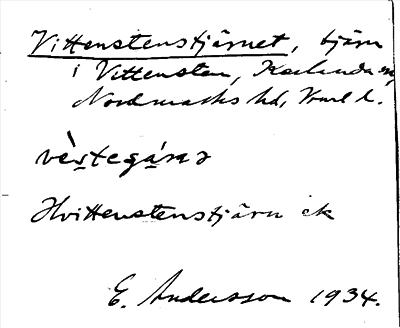 Vittenstenstjärnet, tjärn
i Vittensten, Karlanda sn,
Nordmarks hd, Vrml l.
vè̀stegá̱rnə
Hvittenstenstjärn ek
E. Andersson 1934.